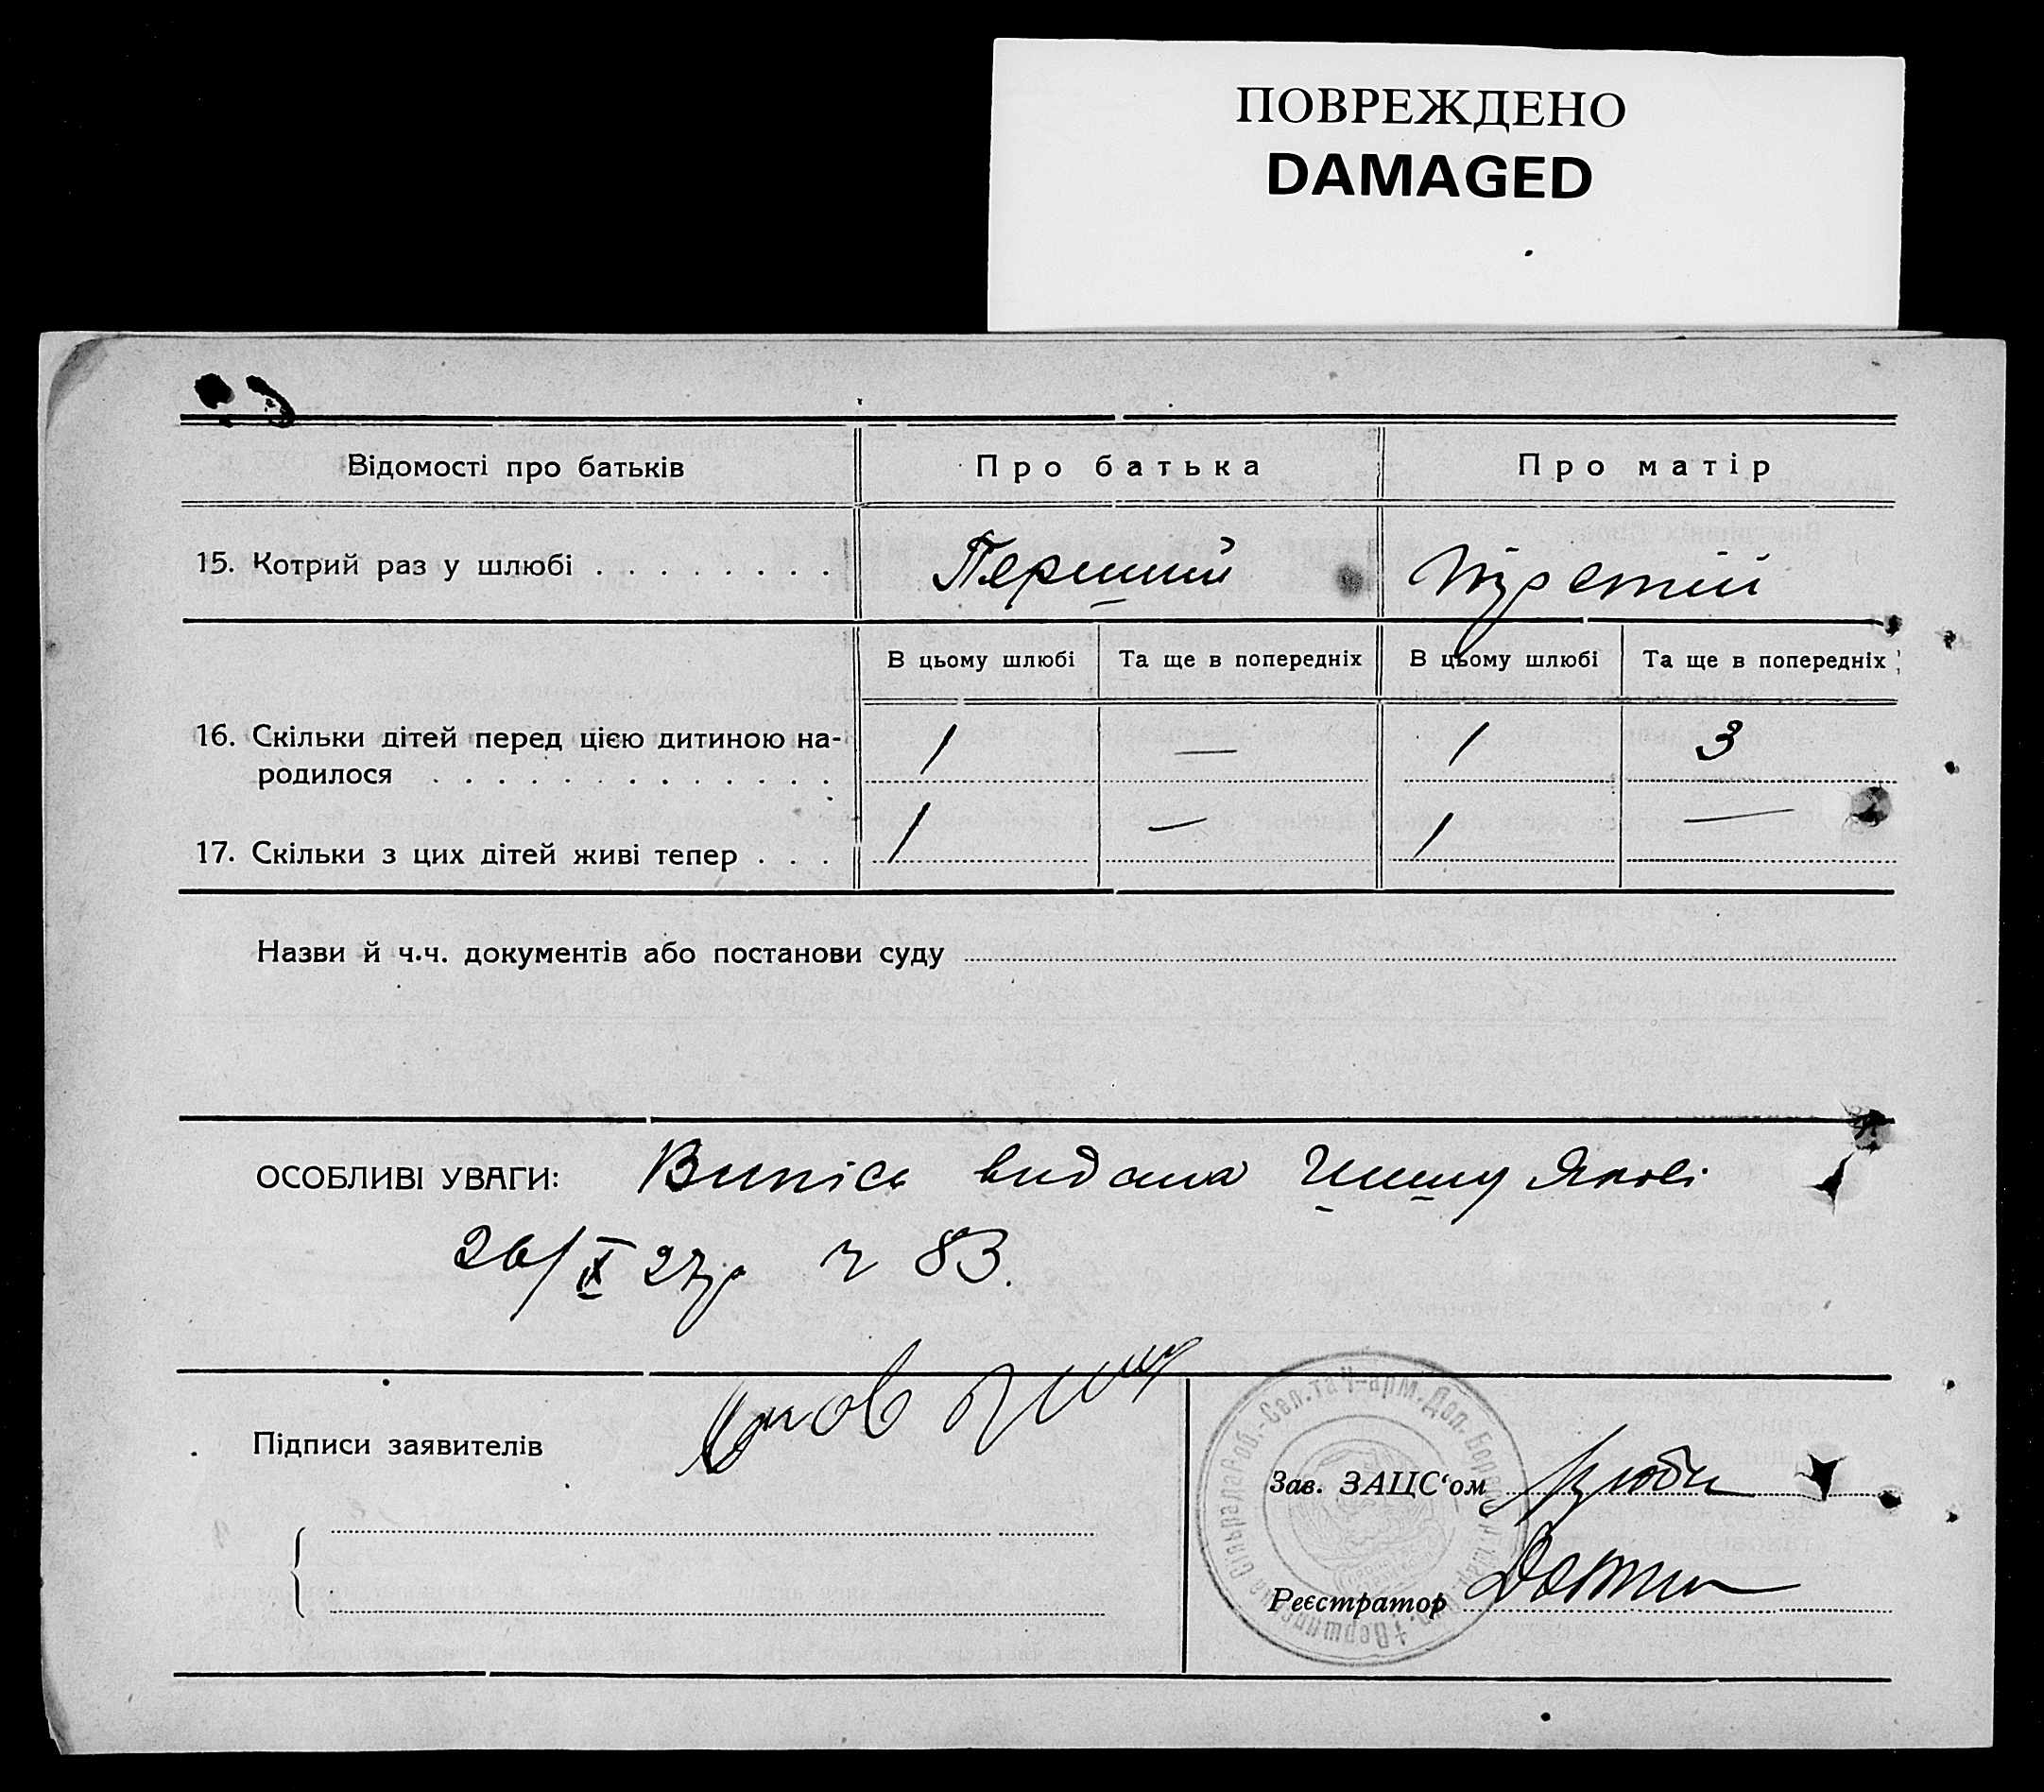 ПОВРЕЖДЕНО
DAMAGED
Відомості про батьків
Про батька
Про матір
15. Котрий раз у шлюбі . . . . . . . .
Перший
третій
В цьому шлюбі
Та ще в попередніх
В цьому шлюбі
Та ще в попередніх
16. Скільки дітей перед цією дитиною на-
родилося
1
—
1
3
17. Скільки з цих дітей живі тепер . . .
1
—
1
—
Назви й ч.ч. документів або постанови суду
ОСОБЛИВІ УВАГИ: Випісь видана Якові
26/IX 27р ч 83.
Підписи заявителів
Яков
Зав. ЗАЦС‘ом
Реєстратор
Сільрада Роб.-Сел. та Ч-арм. Деп.